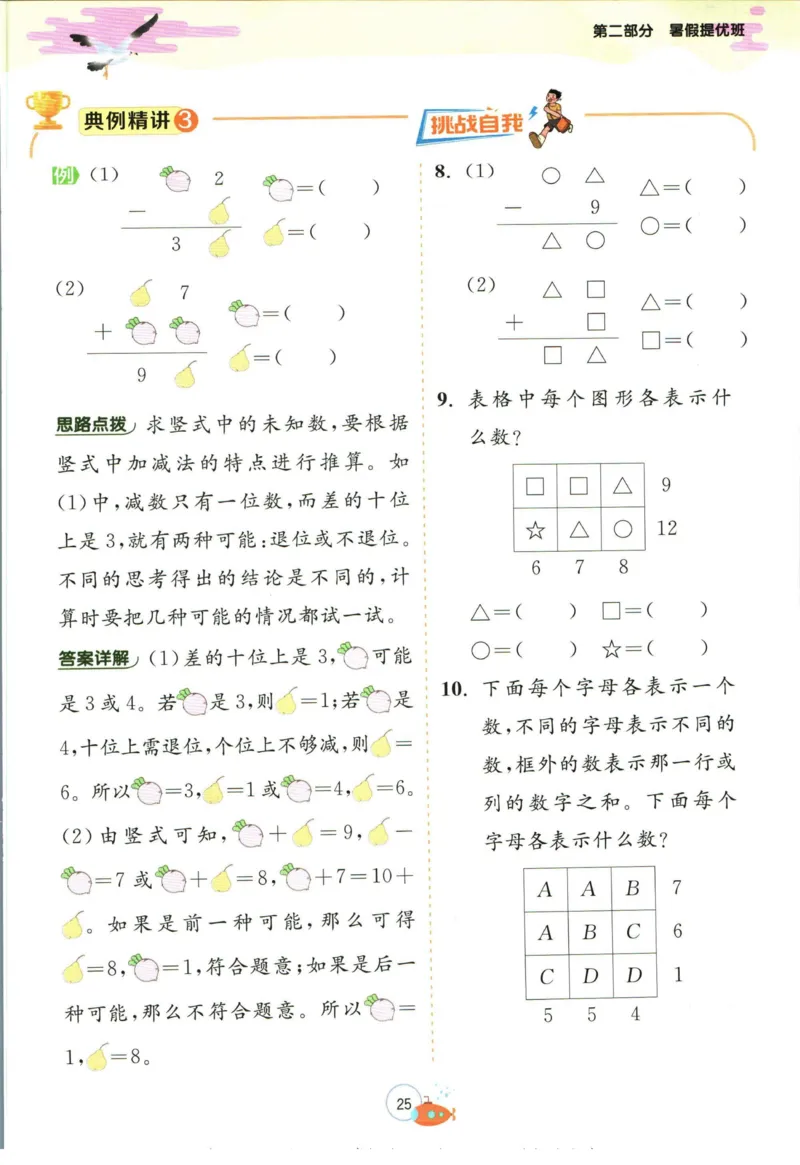 第二部分 暑假提优班
典例精讲3
例 (1) 2 =( )
- =( )
3
(2) 7 =( )
+
9 =( )
思路点拨 求竖式中的未知数,要根据
竖式中加减法的特点进行推算。如
(1)中,减数只有一位数,而差的十位
上是3,就有两种可能:退位或不退位。
不同的思考得出的结论是不同的,计
算时要把几种可能的情况都试一试。
答案详解 (1)差的十位上是3, 可能
是3或4。若 是3,则 =1;若 是
4,十位上需退位,个位上不够减,则 =
6。所以 =3, =1或 =4, =6。
(2)由竖式可知, + =9, -
=7或 + =8, +7=10+
。如果是前一种可能,那么可得
=8, =1,符合题意;如果是后一
种可能,那么不符合题意。所以 =
1, =8。
挑战自我
8. (1) ○ △ △=( )
- 9 ○=( )
△ ○
(2) △ □ △=( )
+ □ □=( )
□ △
9. 表格中每个图形各表示什
么数?
□ □ △ 9
☆ △ ○ 12
6 7 8
△=( ) □=( )
○=( ) ☆=( )
10. 下面每个字母各表示一个
数,不同的字母表示不同的
数,框外的数表示那一行或
列的数字之和。下面每个
字母各表示什么数?
A A B 7
A B C 6
C D D 1
5 5 4
25